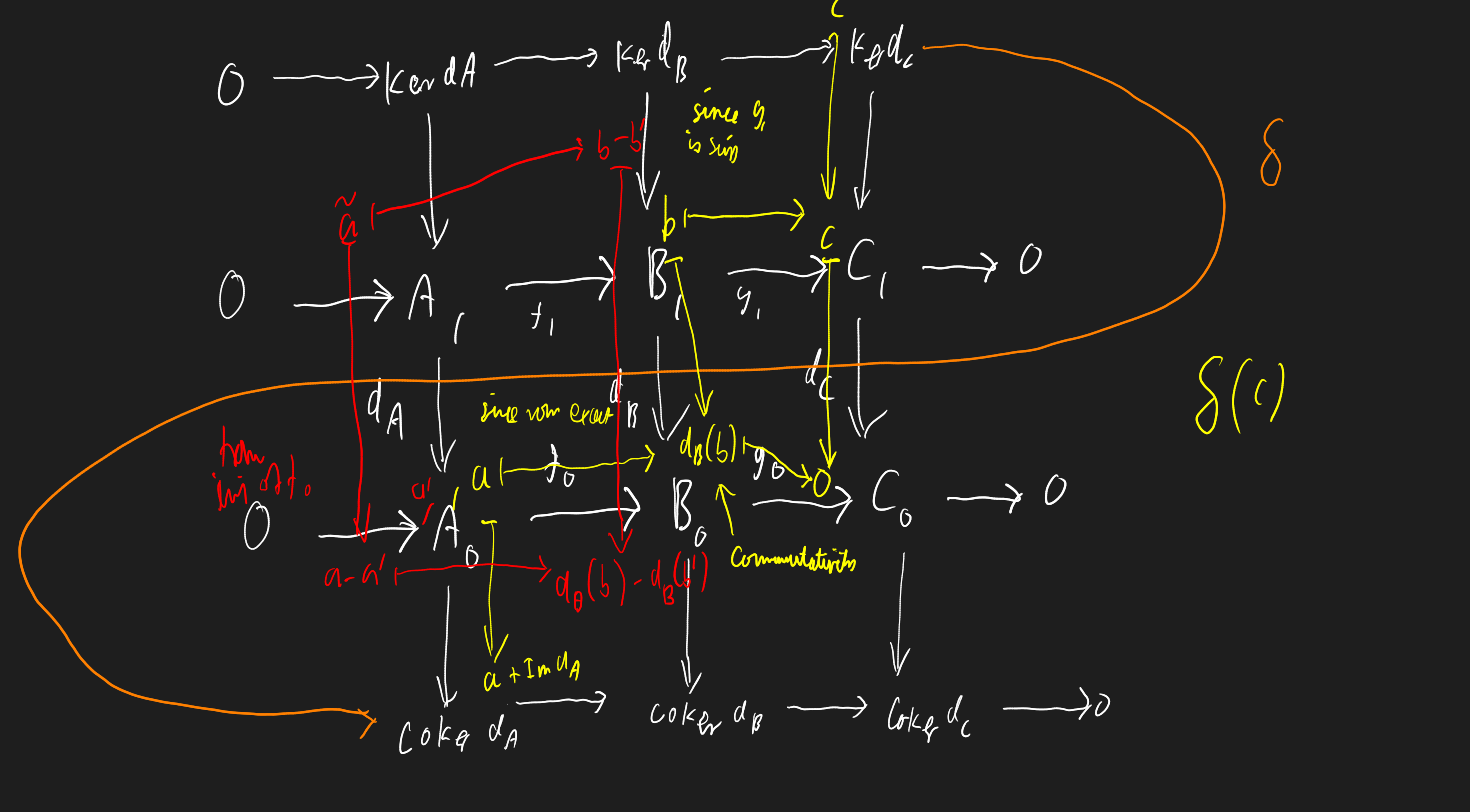 c
0 ker dA ker d_B ker d_C
since g_1
is surj
δ
b-b'
ã
b
c
0 A_1 B_1 C_1 0
f_1 g_1
d_A d_B d_C
δ(c)
since row exact
d_B(b)
a f_0 g_0 0
a'
0 A_0 B_0 C_0 0
Commutativity
a-a' d_B(b)-d_B(b')
a + Im d_A
coker d_A coker d_B coker d_C 0